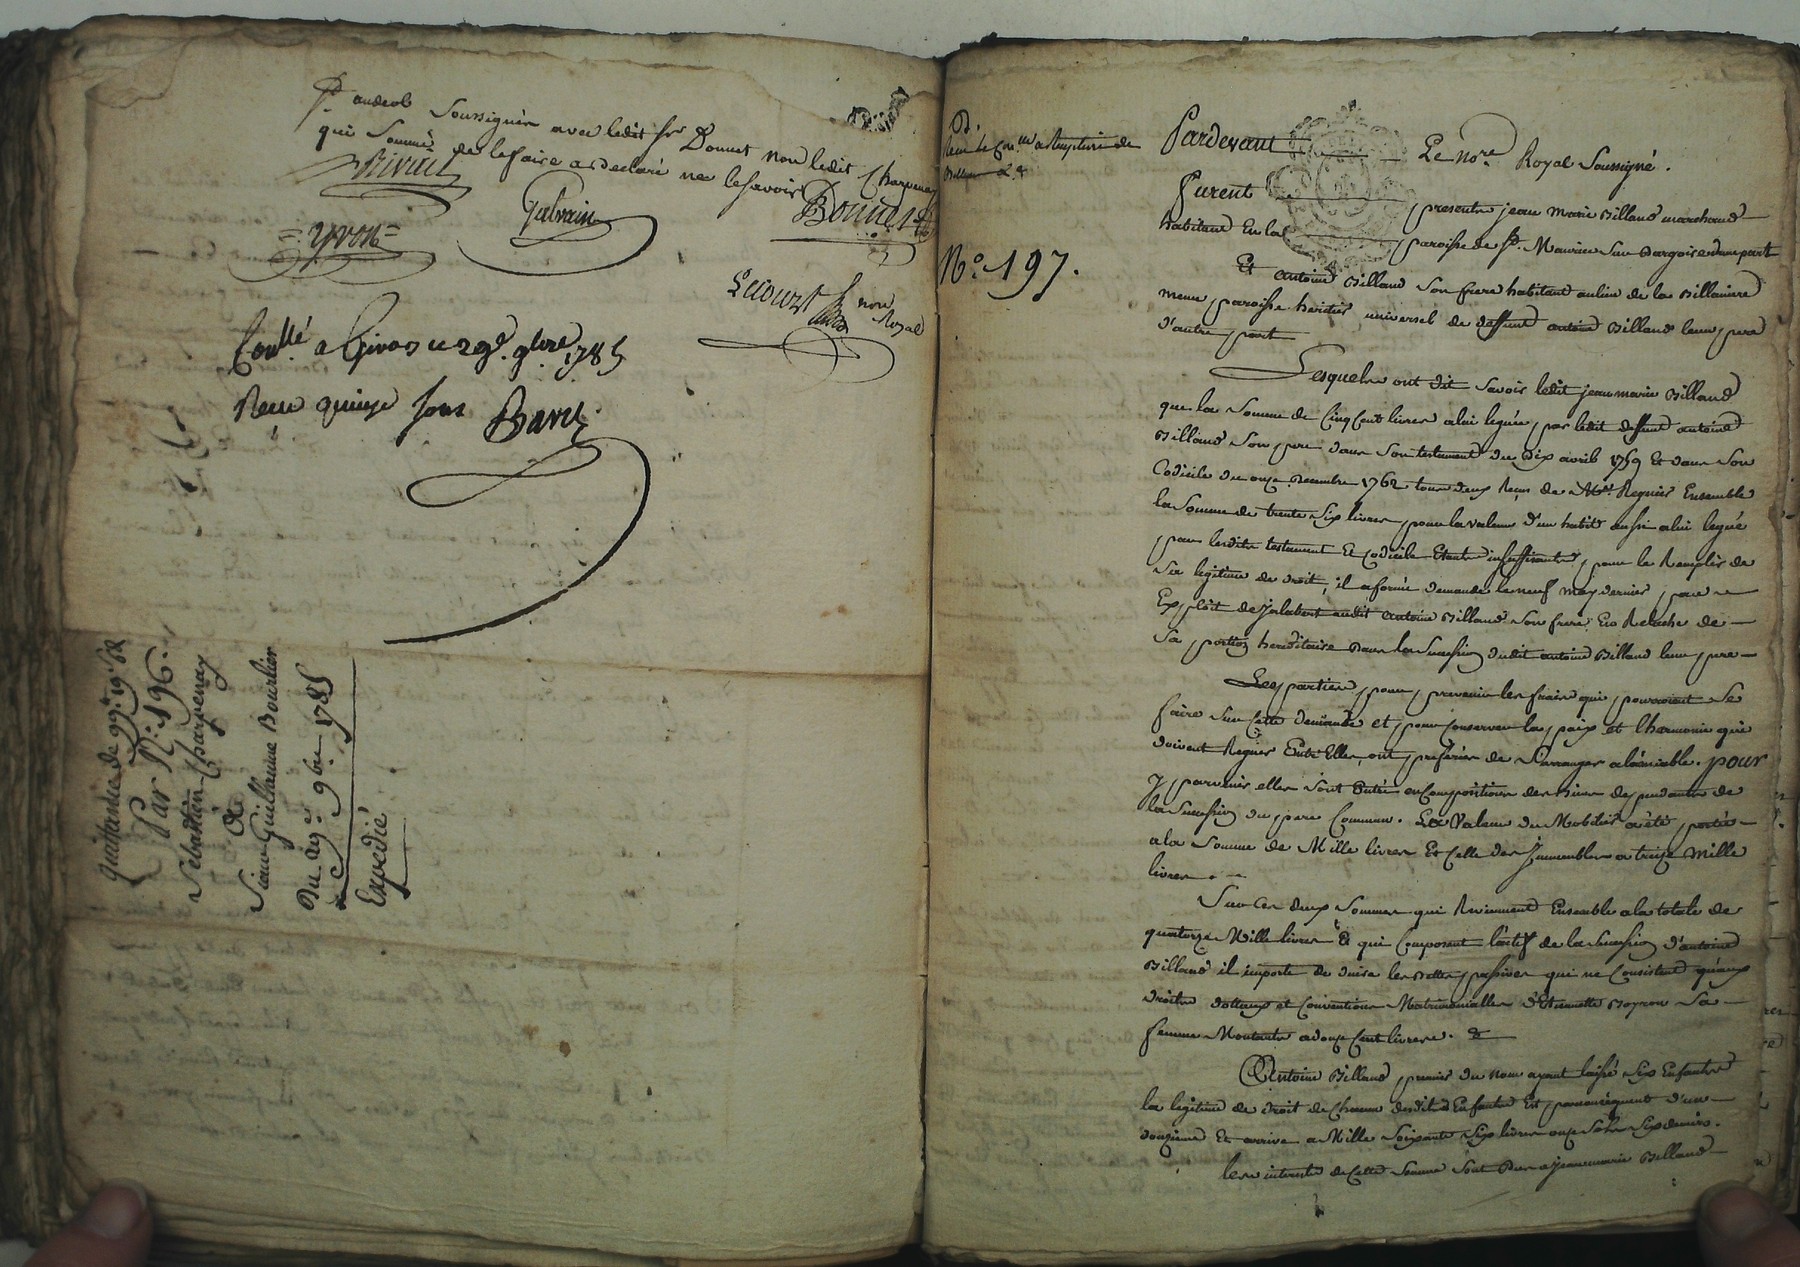 soussignés avec ledit sr Donnet non ledit Charpenay
qui sommé de le faire a declaré ne le savoir
Rivail
Galvain
Donnet
= Yvon =
Lecourt
nore
Royal
Conllé a Givors ce 29e. 9bre. 1785
Recu quinze sous Barel
quittance de
Par N.° 196.
Sébastien Charpenay
à
Sieur Guillaume Bourlier
Du 9bre. 1785
Expedié
N.° 197.
Pardevant Le Nore. Royal Soussigné.
furent presents jean marie Billand marchand
habitant en la paroisse de St. Maurice sur Dargoire d'une part
Et antoine Billand son frere habitant au lieu de la Billaniere
meme paroisse heritier universel de deffunt antoine Billand leur pere
d'autre part
Lesquels ont dit savoir ledit jean marie Billand
que la somme de cinq cent livres a lui leguée par ledit deffunt antoine
Billand son pere dans son testament du dix avril 1759 Et dans son
Codicile du onze Decembre 1762 tous deux Recus de Me. Regnier Ensemble
la somme de trente six livres pour la valeur d'un habit aussi a lui legué
par lesdits testament Et codicile Etants insuffisants pour le Remplir de
sa legitime de droit, il a formé demande le neuf may dernier par
Exploit de Jalabert audit antoine Billand son frere En Relache de
sa portion hereditaire dans la succession dudit antoine Billand leur pere
Les parties pour prevenir les frais qui pourroient se
faire sur cette demande et pour conserver la paix et l'harmonie qui
doivent Regner Entre Elles, ont preferés de s'arranger a l'amiable. pour
y parvenir elles sont Entrés en composition des biens dependants de
la succession du pere commun. La valeur du Mobilier a été portée
a la somme de Mille livres Et celle des Immeubles a treize mille
livres.
Sur ces deux sommes qui Reviennent Ensemble a la totale de
quatorze Mille livres Et qui composent l'actif de la succession d'antoine
Billand il importe de duire les dettes passives qui ne consistent qu'aux
droits dottaux et conventions Matrimonialles d'Etiennette Boyron sa
femme Montants a douze cent livres. &
Antoine Billand premier du nom ayant laissé six Enfants
la legitime de droit de chacun desdits Enfants Est par consequent d'un
douzieme Et arrive a Mille soixante six livres onze sols six deniers.
les interets de cette somme sont dus a jean marie Billand